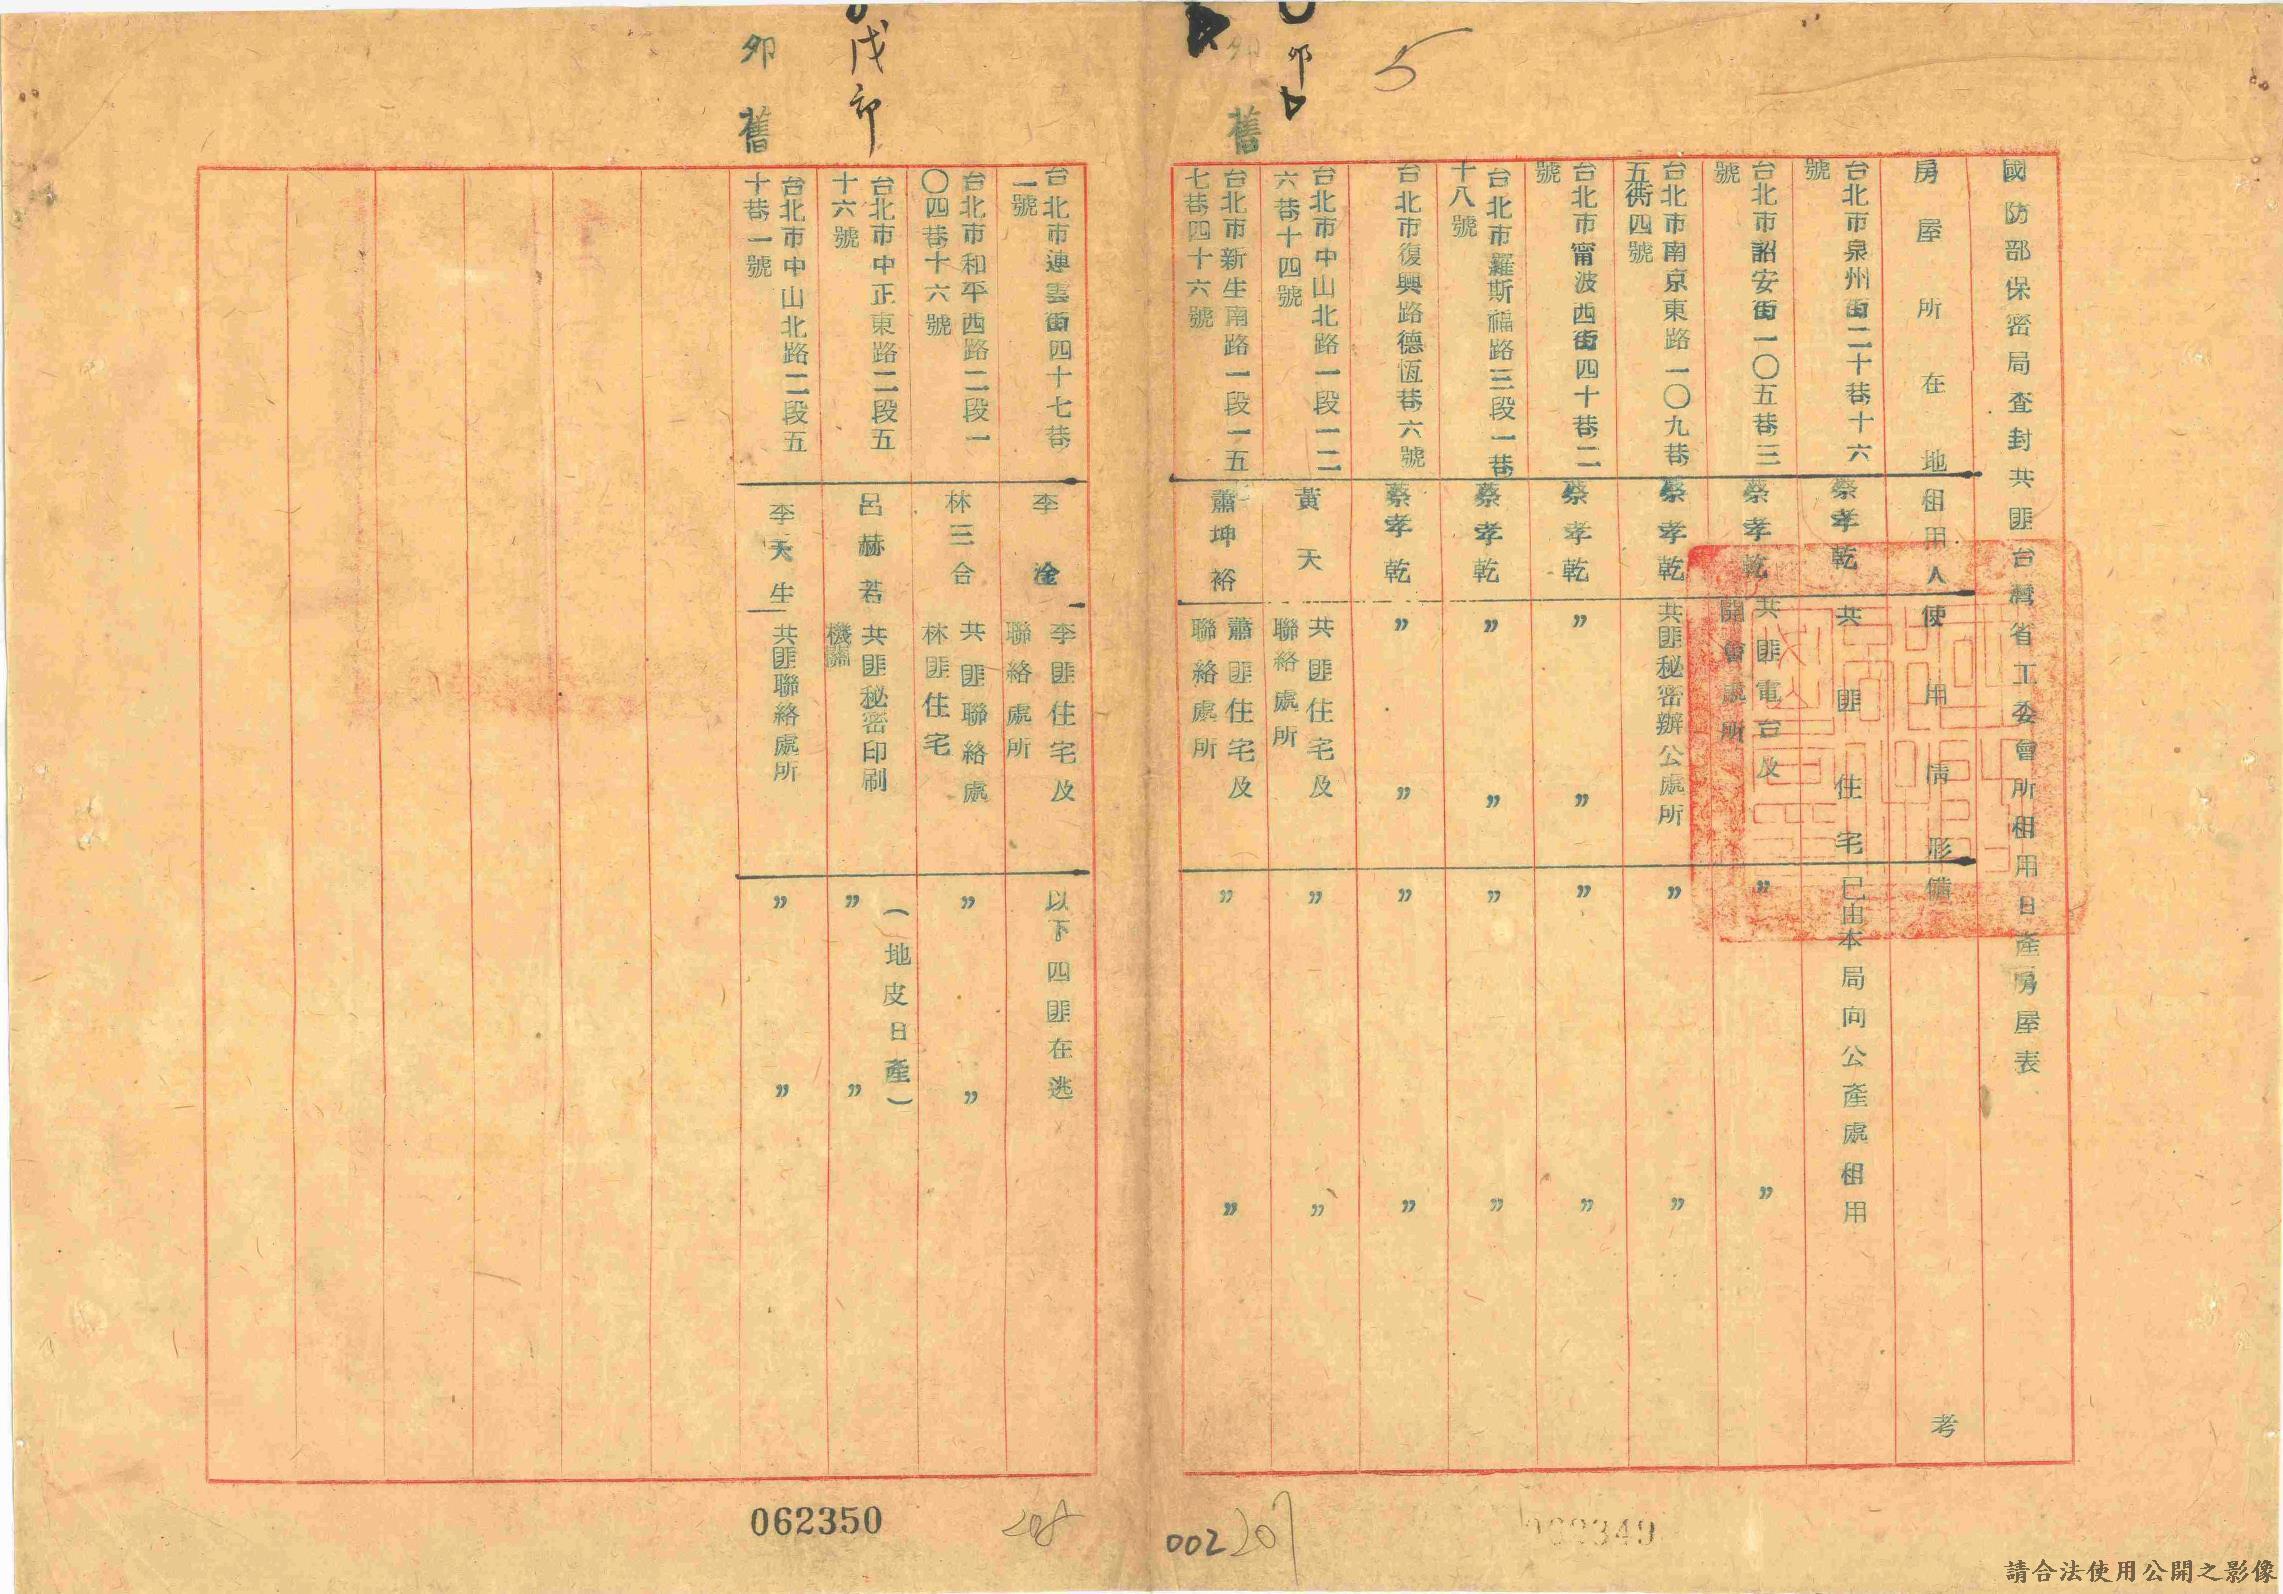 5
卯
卯
舊
國防部保密局查封共匪台灣省工委會所租用日產房屋表
房屋所在地
租用人
使用情形
備考
台北市泉州街二十巷十六
號
蔡孝乾
共匪住宅
已由本局向公產處租用
台北市詔安街一〇五巷三
號
蔡孝乾
共匪電台及
開會處所
〃 〃
台北市南京東路一〇九巷
五衖四號
蔡孝乾
共匪秘密辦公處所
〃 〃
台北市甯波西街四十巷二
號
蔡孝乾
〃 〃
〃 〃
台北市羅斯福路三段一巷
十八號
蔡孝乾
〃 〃
〃 〃
台北市復興路德恆巷六號
蔡孝乾
〃 〃
〃 〃
台北市中山北路一段一二
六巷十四號
黃天
共匪住宅及
聯絡處所
〃 〃
台北市新生南路一段一五
七巷四十六號
蕭坤裕
蕭匪住宅及
聯絡處所
〃 〃
戊卯
卯
舊
台北市連雲街四十七巷
一號
李淦
李匪住宅及
聯絡處所
以下四匪在逃
台北市和平西路二段一
〇四巷十六號
林三合
共匪聯絡處
林匪住宅
〃 〃
台北市中正東路二段五
十六號
呂赫若
共匪秘密印刷
機關
(地皮日產)
〃 〃
台北市中山北路二段五
十巷一號
李天生
共匪聯絡處所
〃 〃
002
207
208
062350
請合法使用公開之影像